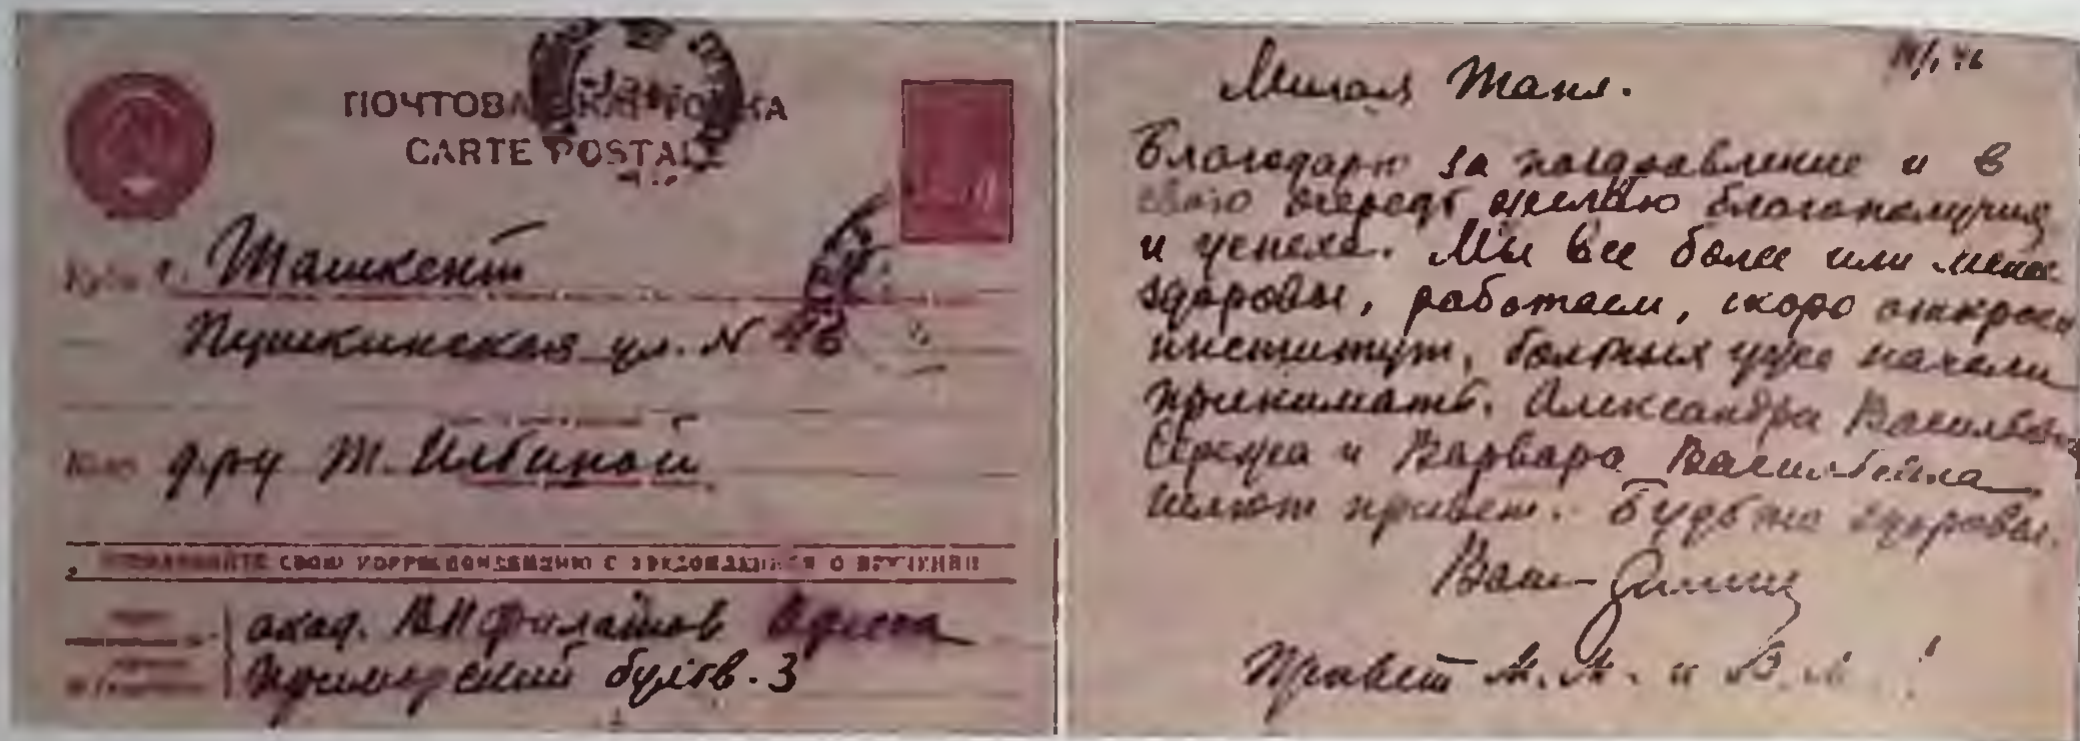 ПОЧТОВАЯ КАРТОЧКА
CARTE POSTALE
Куда г. Ташкент
Пушкинская ул. N
Кому д-ру Т. Ильиной
СВОЮ КОРРЕСПОНДЕНЦИЮ С О ВРУЧЕНИИ
акад. ВП Филатов Одесса
Приморский бульв. 3
Милая Таня.
Благодарю за поздравление и в
свою очередь желаю благополучия
и успеха. Мы все более или менее
здоровы, работаем, скоро откроем
институт, больных уже начали
принимать. Александра Васильевна
Сережа и Варвара Васильевна
шлют привет. Будьте здоровы.
Ваш
Привет М.М. и В.М. !